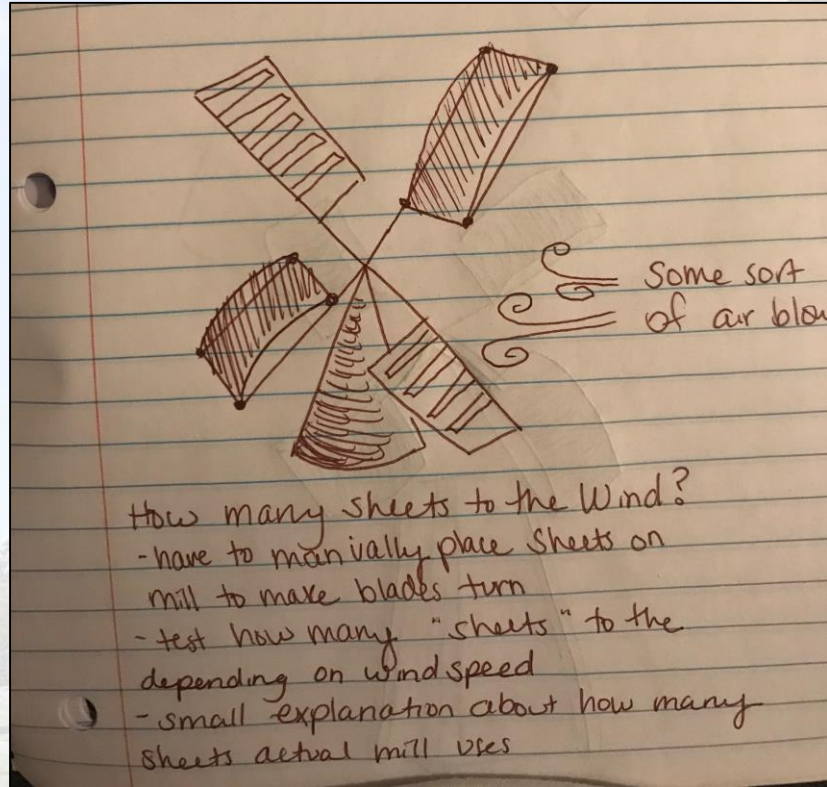 Some sort
of air blow
How many sheets to the Wind?
- have to manivally place Sheets on
mill to make blades turn
- test how many "sheets" to the
depending on windspeed
- small explanation about how many
sheets actual mill uses